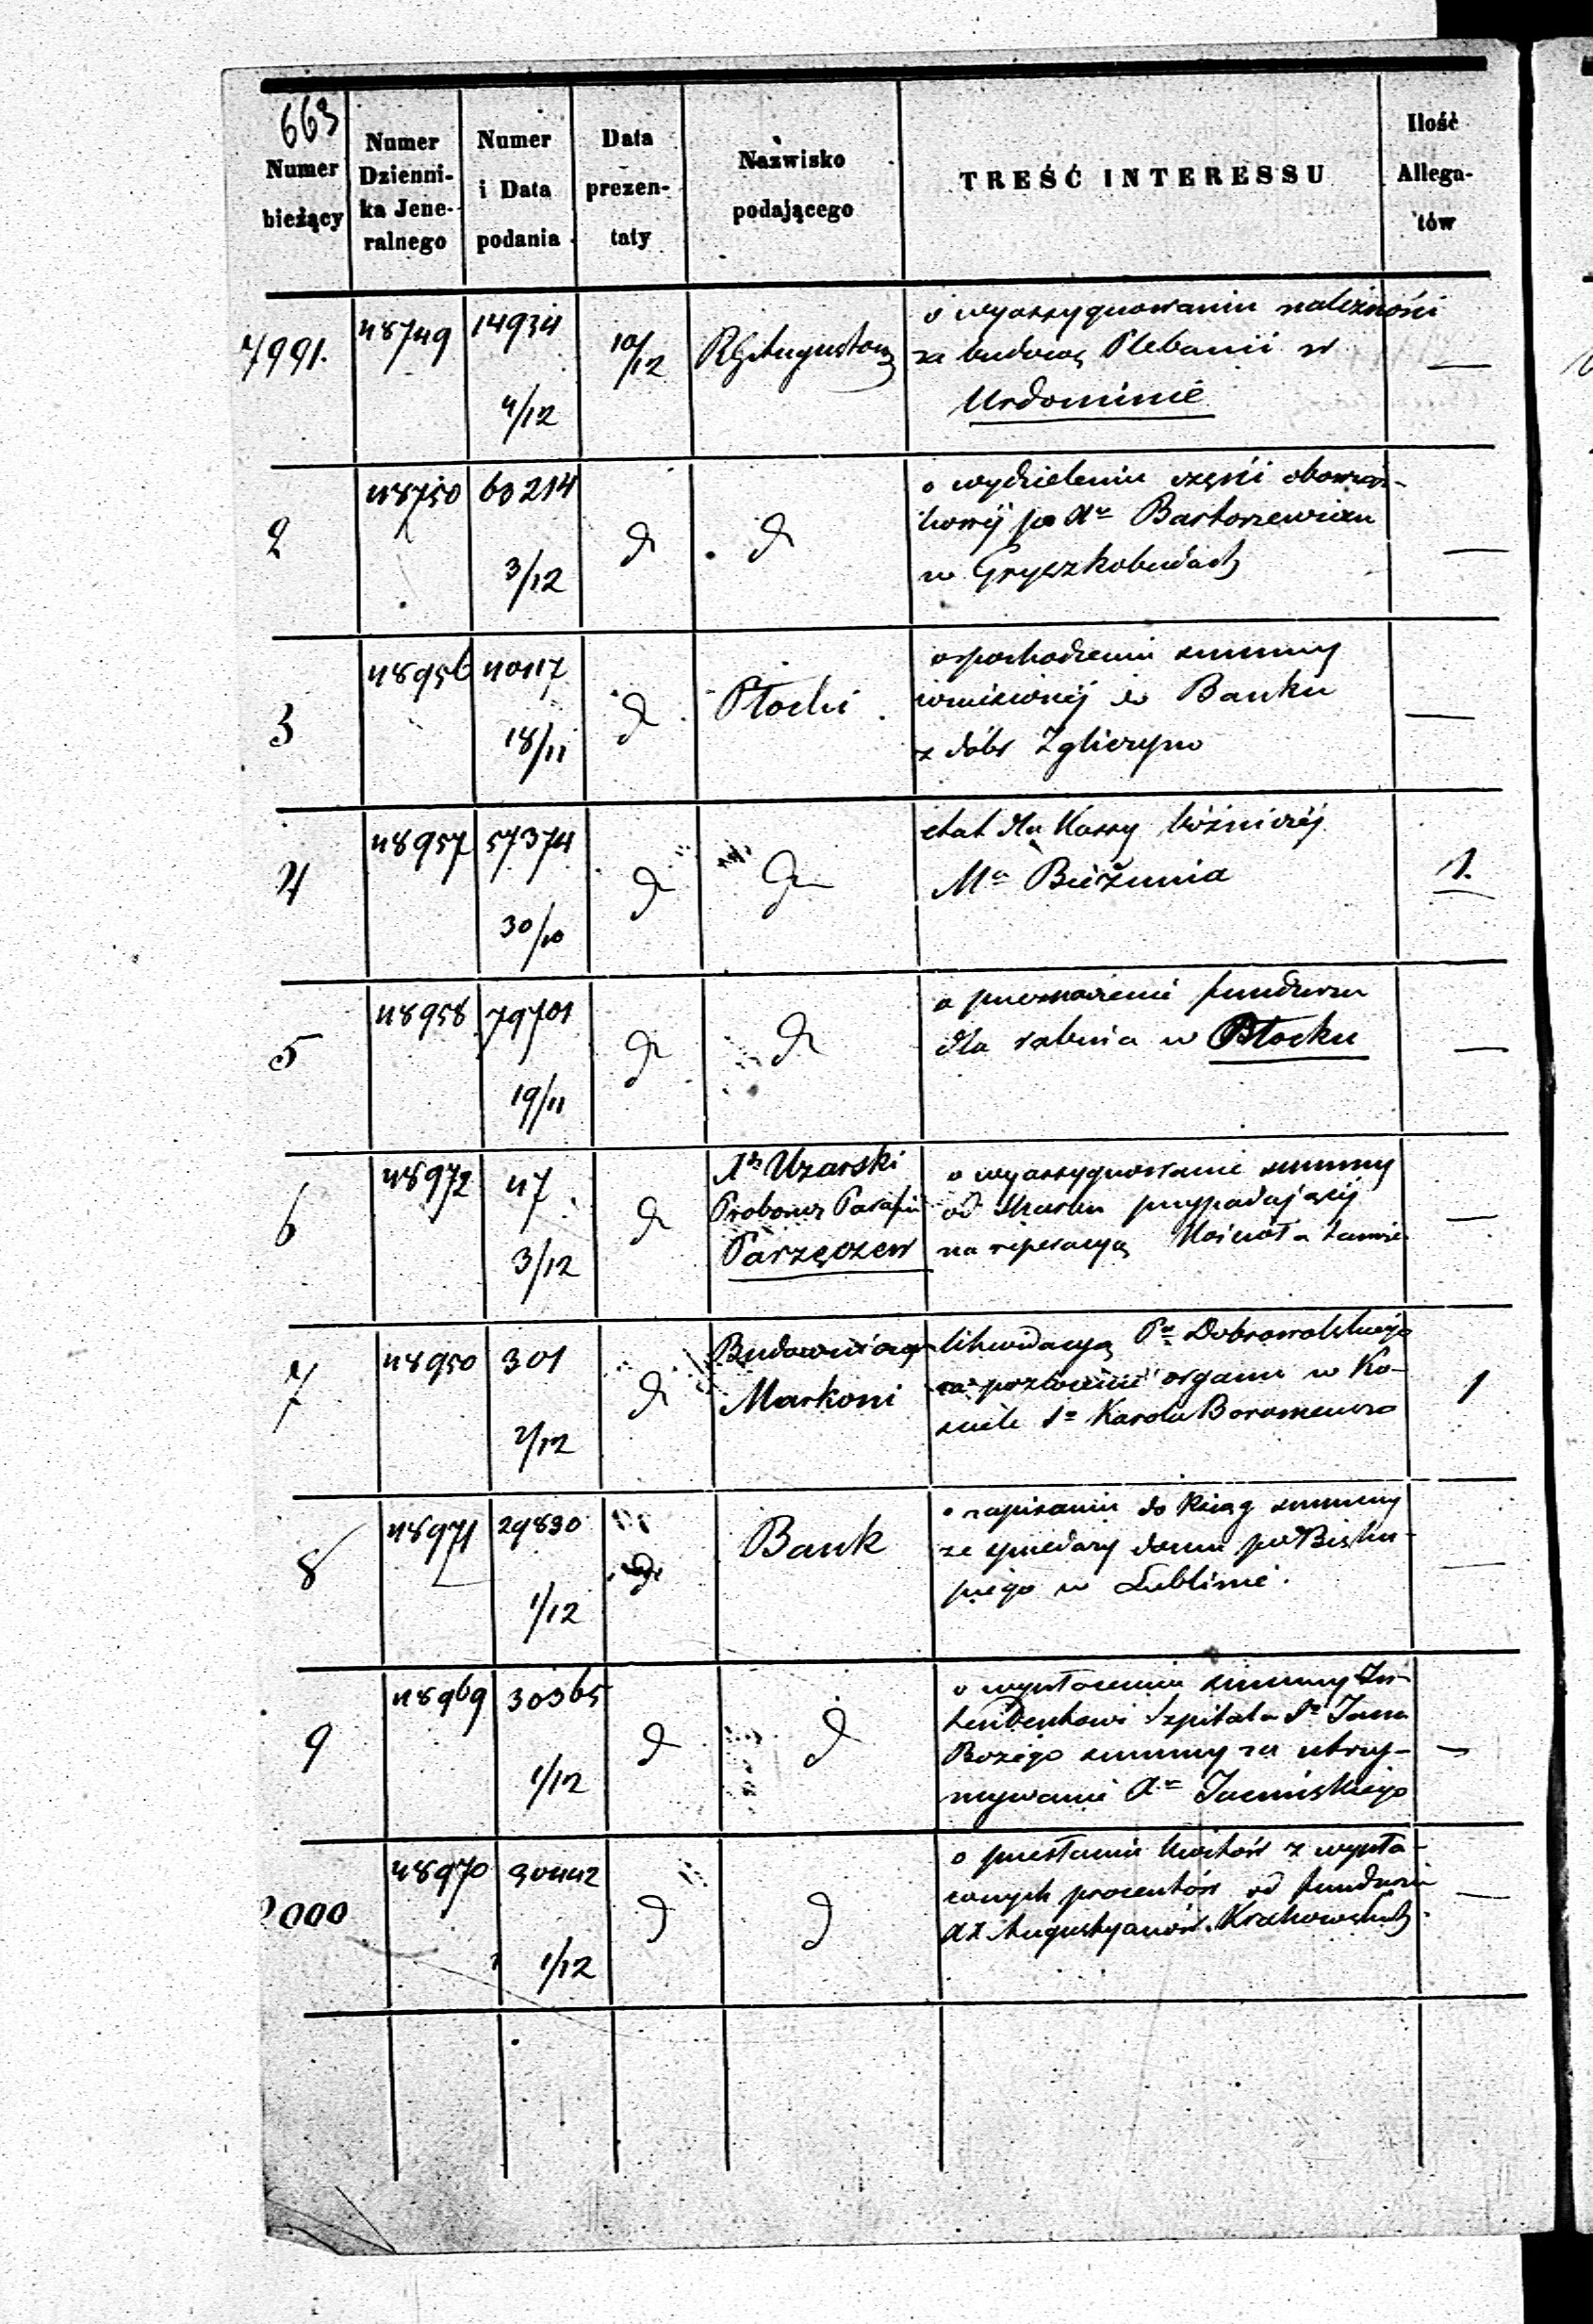 663
Numer bieżący
Numer Dzienni-ka Jene-ralnego
Numer i Data podania
Data prezen-taty
Nazwisko podającego
TREŚĆ INTERESSU
Ilość Allega-tów
7991. 48749 14934 4/12 10/12 RG Augustow
o wyassygnowaniu należności
za budowę Plebanii w
Urdominie
—
2 48750 63214 3/12 d d
o wydzieleniu części
po Xu Bartoszewiczu
w Gryszkobudach
—
3 48956 40117 18/11 d Płocki
o pochodzeniu summy
wniesionej do Banku
z dóbr Zgliczyno
—
4 48957 57374 30/10 d d
etat dla Kassy bóżniczej
Ma Bieżunia
1.
5 48958 79701 19/11 d d
o przeznaczenie funduszu
dla rabina w Płocku
—
6 48972 47 3/12 d
Xdz Uzarski
Proboszcz Parafii
Parzęczew
o wyassygnowanie summy
od Skarbu przypadającej
na reperacyą Kościoła tamże
—
7 48950 301 2/12 d
Budowniczy
Markoni
likwidacyą Pa Dobrowolskiego
za pozłocenie organu w Ko-
sciele So Karola Boromeusza
1
8 48971 29830 1/12 d Bank
o zapisaniu do Ksiąg summy
ze sprzedaży domu po Bisku-
piego w Lublinie.
—
9 48969 30365 1/12 d d
o wypłaceniu summy In-
tendentowi Szpitala So Jana
Bożego summy za utrzy-
mywanie Xa
—
2000 48970 30442 1/12 d d
o przesłanie kwitów z wypła-
conych procentów od funduszu
XX Augustyanów Krakowskich
—